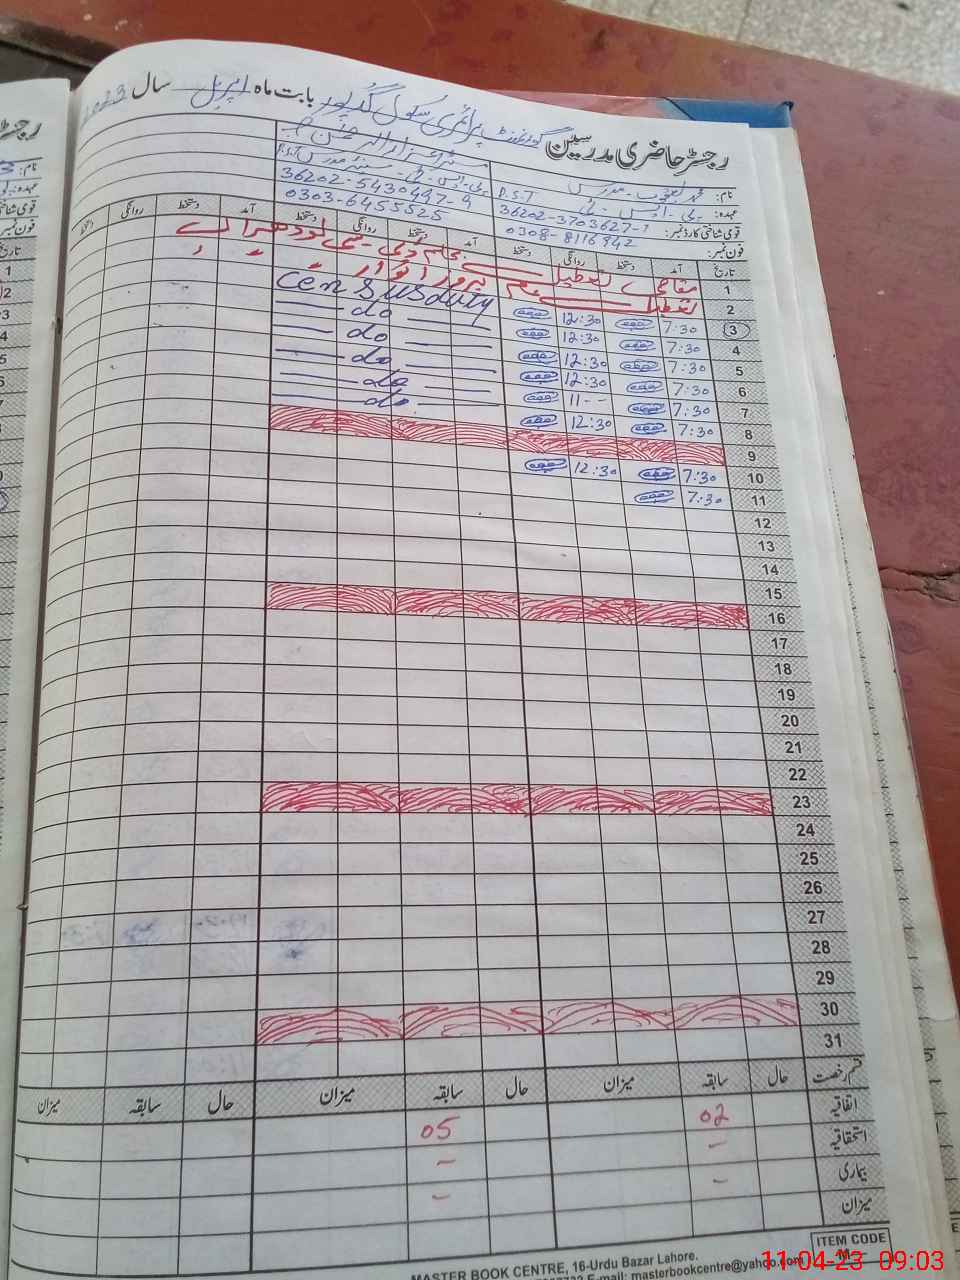 رجسٹر حاضری مدرسین گورنمنٹ پرائمری سکول گُدپور بابت ماہ اپریل سال 2023
نام: محمد یعقوب - مدرس
عہدہ: پی - ایس - ٹی P.S.T
قومی شناختی کارڈ نمبر: 36202-3703627-1
فون نمبر: 0308-8116942
پی-ایس-ٹی - سینئر مدرس P.S.T
36202-5430497-9
0303-6455525
تاریخ آمد دستخط روانگی دستخط آمد دستخط روانگی دستخط آمد دستخط روانگی دستخط
1 مقامی تعطیل بحکم ڈی سی لودھراں
2 تعطیل عام بروز اتوار
3 7:30 12:30 Census duty
4 7:30 12:30 do
5 7:30 12:30 do
6 7:30 12:30 do
7 7:30 11-- do
8 7:30 12:30 do
9
10 7:30 12:30
11 7:30
12
13
14
15
16
17
18
19
20
21
22
23
24
25
26
27
28
29
30
31
قسم رخصت حال سابقہ میزان حال سابقہ میزان حال سابقہ میزان
اتفاقیہ 02 05
استحقاقیہ - -
بیماری - -
میزان
ITEM CODE
M-
MASTER BOOK CENTRE, 16-Urdu Bazar Lahore.
E-mail: masterbookcentre@yahoo.com
11-04-23 09:03